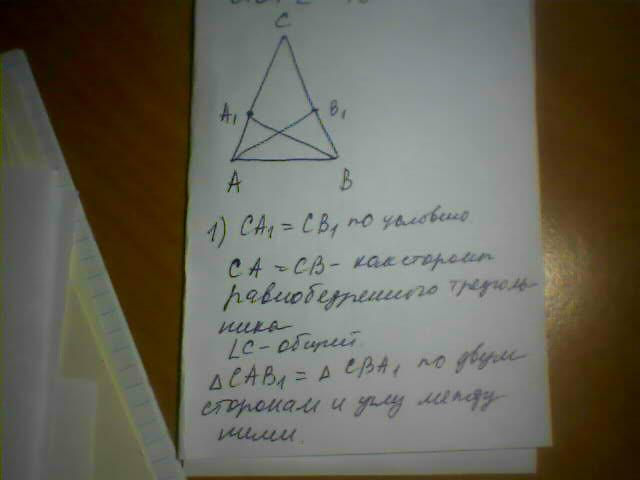 C
A₁
B₁
A
B
1) CA₁ = CB₁ по условию.
CA = CB - как сторон
равнобедренного треуголь-
ника
∠C - общий.
△CAB₁ = △CBA₁ по двум
сторонам и углу между
ними.